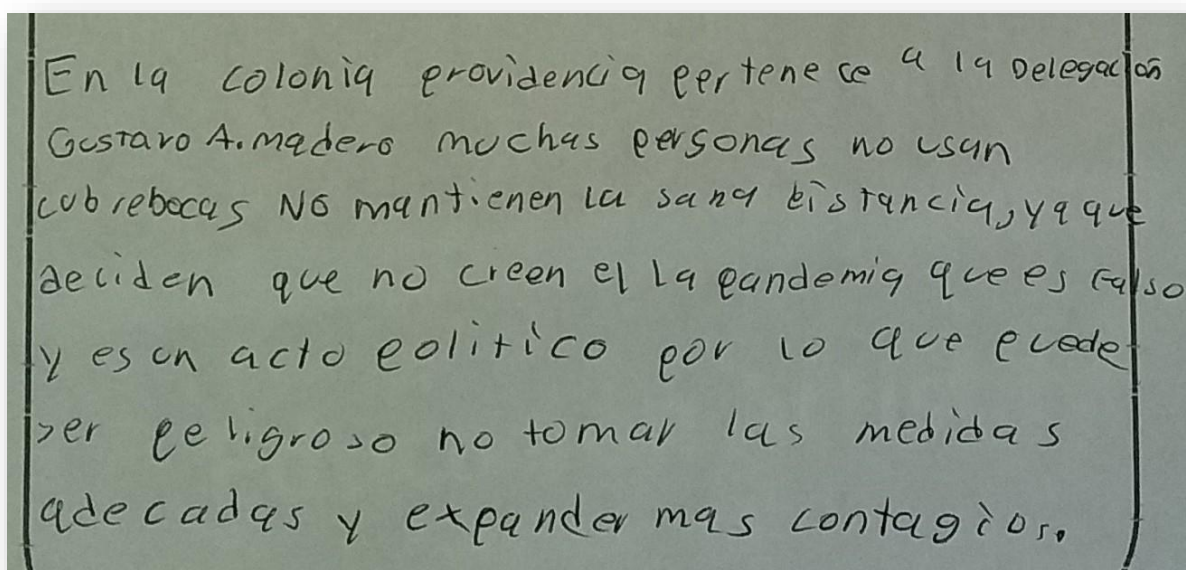 En la colonia providencia pertenece a la Delegación
Gustavo A. madero muchas personas no usan
cubrebocas NO mantienen la sana distancia, ya que
deciden que no creen el la pandemia que es falso
y es un acto politico por lo que puede
ser peligroso no tomar las medidas
adecadas y expander mas contagios.